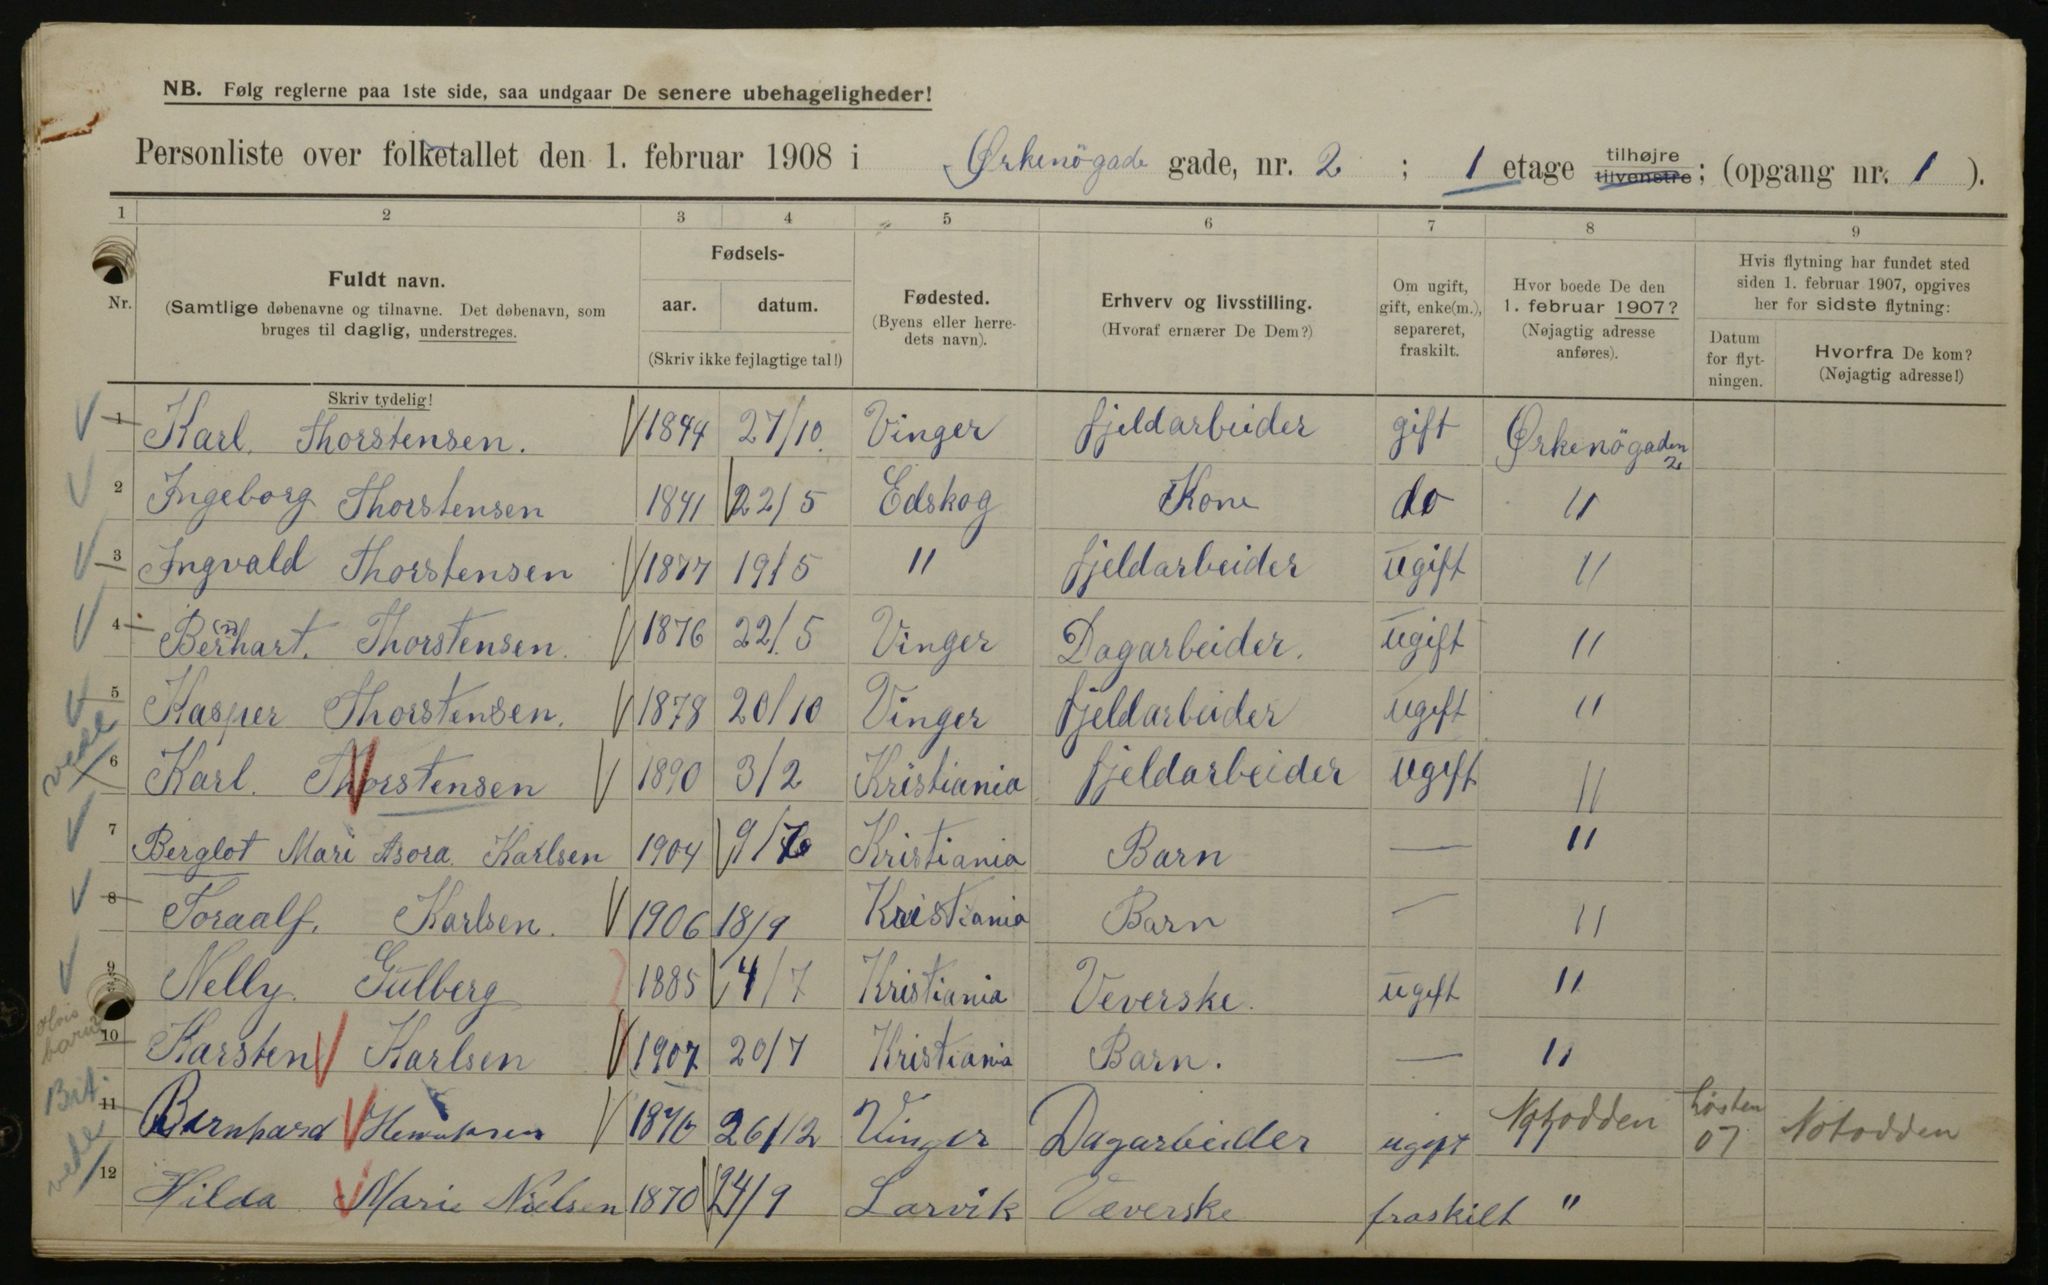 NB. Følg reglerne paa 1ste side, saa undgaar De senere ubehageligheder!
Personliste over folketallet den 1. februar 1908 i Ørkenögade gade, nr. 2 ; 1 etage tilhøjre tilvenstre ; (opgang nr. 1 ).
1 2 3 4 5 6 7 8 9
Nr.
Fuldt navn.
(Samtlige døbenavne og tilnavne. Det døbenavn, som
bruges til daglig, understreges.
Skriv tydelig!
Fødsels-
aar. datum.
(Skriv ikke fejlagtige tal!)
Fødested.
(Byens eller herre-
dets navn).
Erhverv og livsstilling.
(Hvoraf ernærer De Dem?)
Om ugift,
gift, enke(m.),
separeret,
fraskilt.
Hvor boede De den
1. februar 1907?
(Nøjagtig adresse
anføres).
Hvis flytning har fundet sted
siden 1. februar 1907, opgives
her for sidste flytning:
Datum
for flyt-
ningen.
Hvorfra De kom?
(Nøjagtig adresse!)
1 Karl. Thorstensen. 1844 27/10. Vinger fjeldarbeider gift Ørkenögaden 2
2 Ingeborg Thorstensen 1841 22/5 Edskog Kone do "
3 Ingvald Thorstensen 1877 19/5 " fjeldarbeider ugift "
4 Bernhart. Thorstensen. 1876 22/5 Vinger Dagarbeider. ugift "
5 Kasper Thorstensen. 1878 20/10 Vinger fjeldarbeider ugift "
vedl
6 Karl. Thorstensen 1890 3/2 Kristiania fjeldarbeider ugift "
7 Berglot Mari Asora. Karlsen 1904 Kristiania Barn — "
8 Toraalf. Karlsen. 1906 18/9 Kristiania Barn — "
9 Nelly. Gulberg 1885 4/7 Kristiania Veverske. ugift "
barn
10 Karsten Karlsen 1907 20/7 Kristiania Barn. — "
11 Bernhard Henriksen 1876 26/12 Vinger Dagarbeider ugift Notodden høsten 07 Notodden
12 Hilda Marie Nielsen 1870 24/9 Larvik Væverske fraskilt "